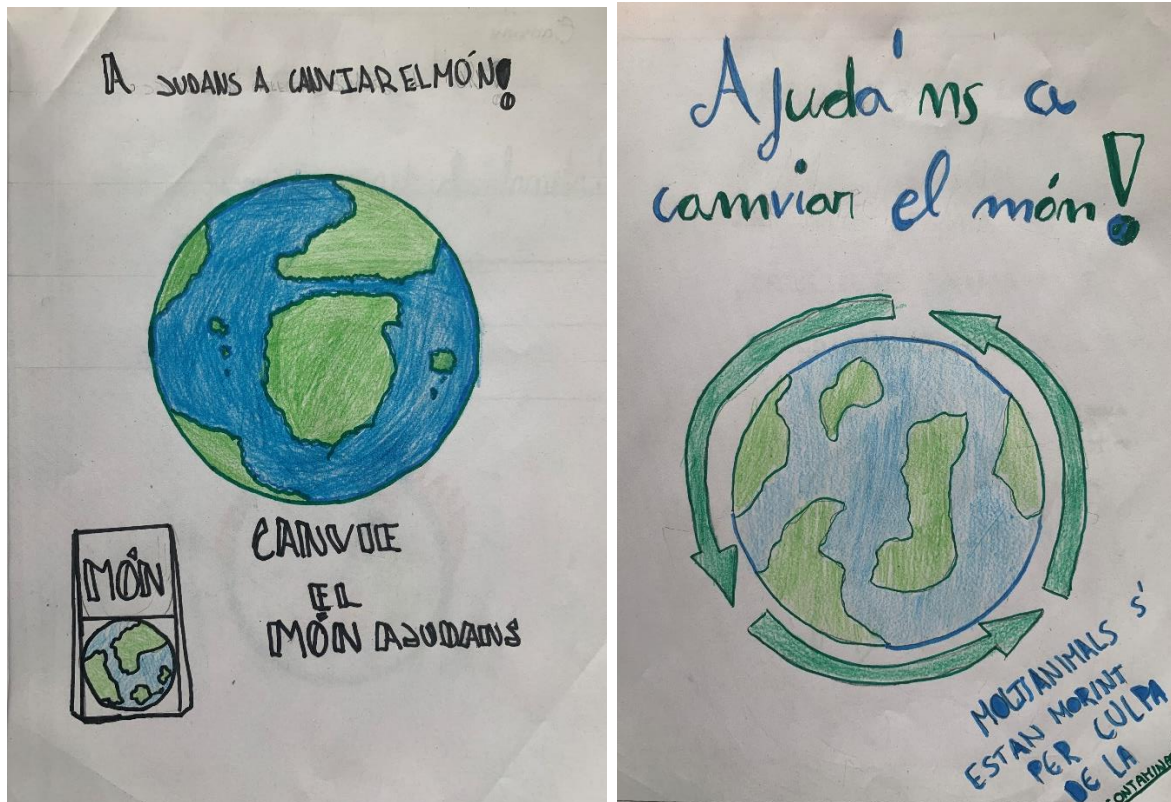 A JUDANS A CANVIAR EL MÓN!
CANVIE
EL
MÓN AJUDANS
MÓN
Ajuda'ns a
camviar el món!
MOLTS ANIMALS S'
ESTAN MORINT
PER CULPA
DE LA